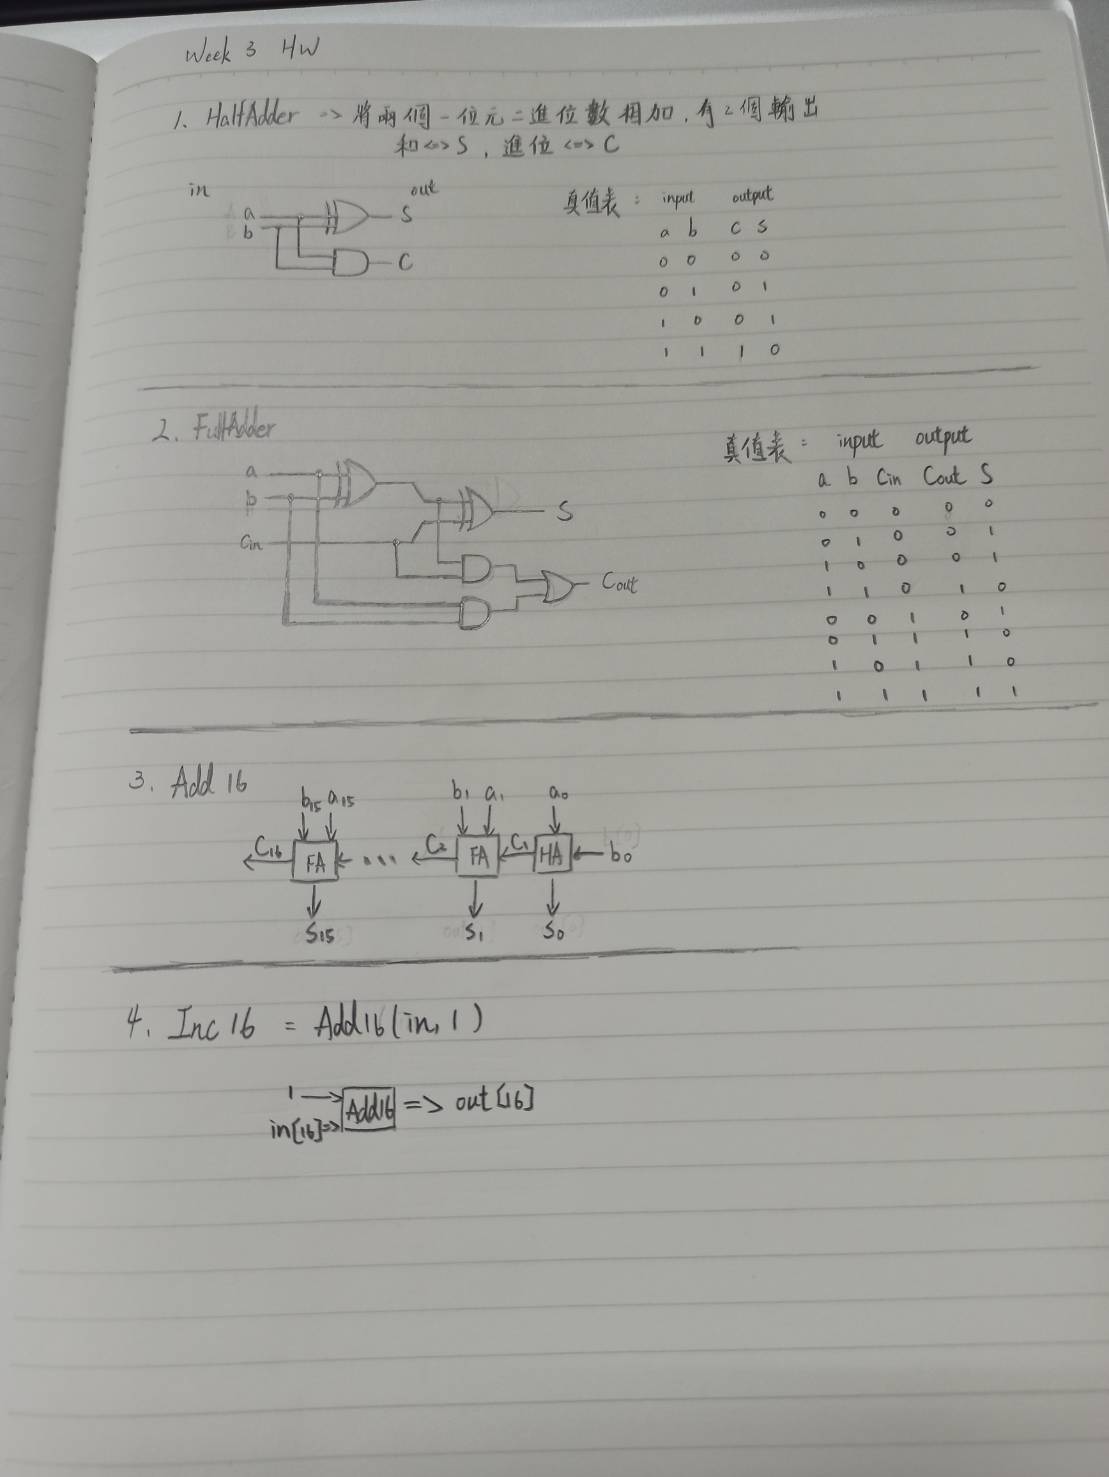 Week 3 HW
1. HalfAdder => 將兩個一位元二進位數相加,有2個輸出
和<=>S, 進位<=>C
in out
a S
b
C
真值表: input output
a b C S
0 0 0 0
0 1 0 1
1 0 0 1
1 1 1 0
2. FullAdder
a
b
S
Cin
Cout
真值表: input output
a b Cin Cout S
0 0 0 0 0
0 1 0 0 1
1 0 0 0 1
1 1 0 1 0
0 0 1 0 1
0 1 1 1 0
1 0 1 1 0
1 1 1 1 1
3. Add 16
b15 a15 b1 a1 a0
C16 FA ... C2 FA C1 HA b0
S15 S1 S0
4. Inc 16 = Add16(in, 1)
1
Add16 => out[16]
in[16]=>